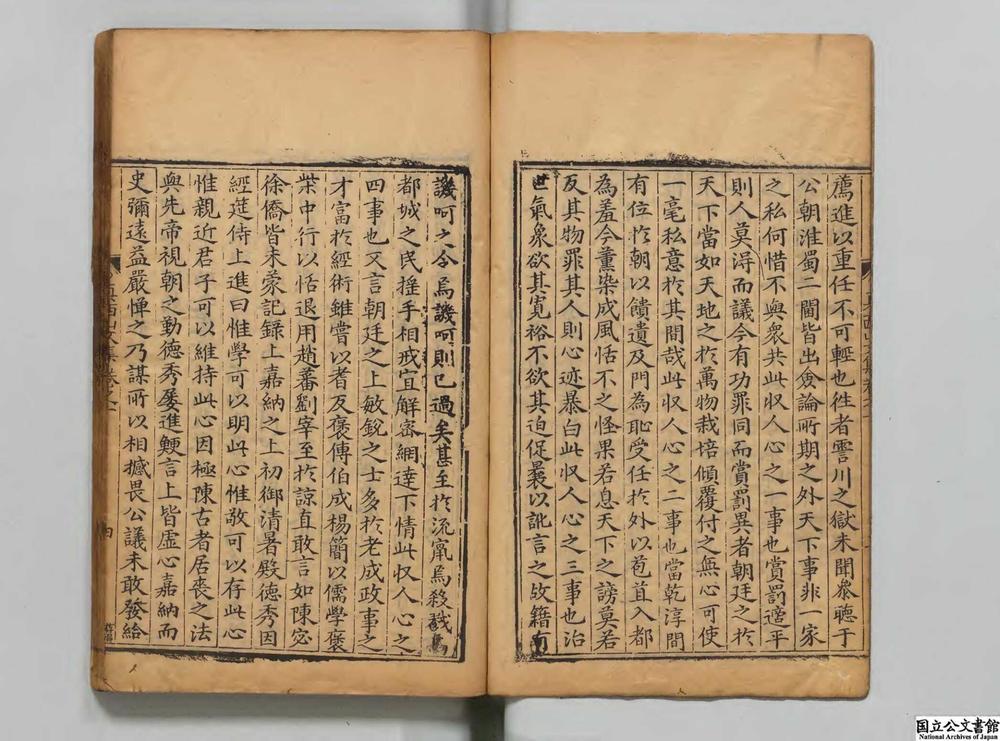 薦進以重任不可輕也徃者霅川之獄未聞叅聽于
公朝淮蜀二閫皆出僉論所期之外天下事非一家
之私何惜不與衆共此収人心之一事也當罰適平
則人莫淂而議今有功罪同而賞罰異者朝廷之於
天下當如天地之於萬物栽培傾覆付之無心可使
一毫私意於其間哉此収人心之二事也當乾淳間
有位於朝以饋遺及門為恥受任於外以苞苴入都
為羞今薰染成風恬不之怪果若息天下之謗莫若
反其物罪其人則心迹暴白此収人心之三事也治
世氣象欲其寛裕不欲其迫促曩以訛言之故籍有
譏呵之令焉譏呵則已過矣甚至於流竄焉殺戮焉
都城之民揺手相戒宜解密網達下情此収人心之
四事也又言朝廷之上敏銳之士多於老成政事之
才富於經術雖嘗以耆艾褒傳伯成楊簡以儒學褒
柴中行以恬退用趙蕃劉宰至於諒直敢言如陳宓
徐僑皆未蒙記録上嘉納之上初御清暑殿德秀因
經莚侍上進曰惟學可以明此心惟敬可以存此心
惟親近君子可以維持此心因極陳古者居喪之法
與先帝視朝之勤德秀屡進鯁言上皆虛心嘉納而
史彌遠益嚴憚之乃謀所以相撼畏公議未敢發給
四
国立公文書館
National Archives of Japan